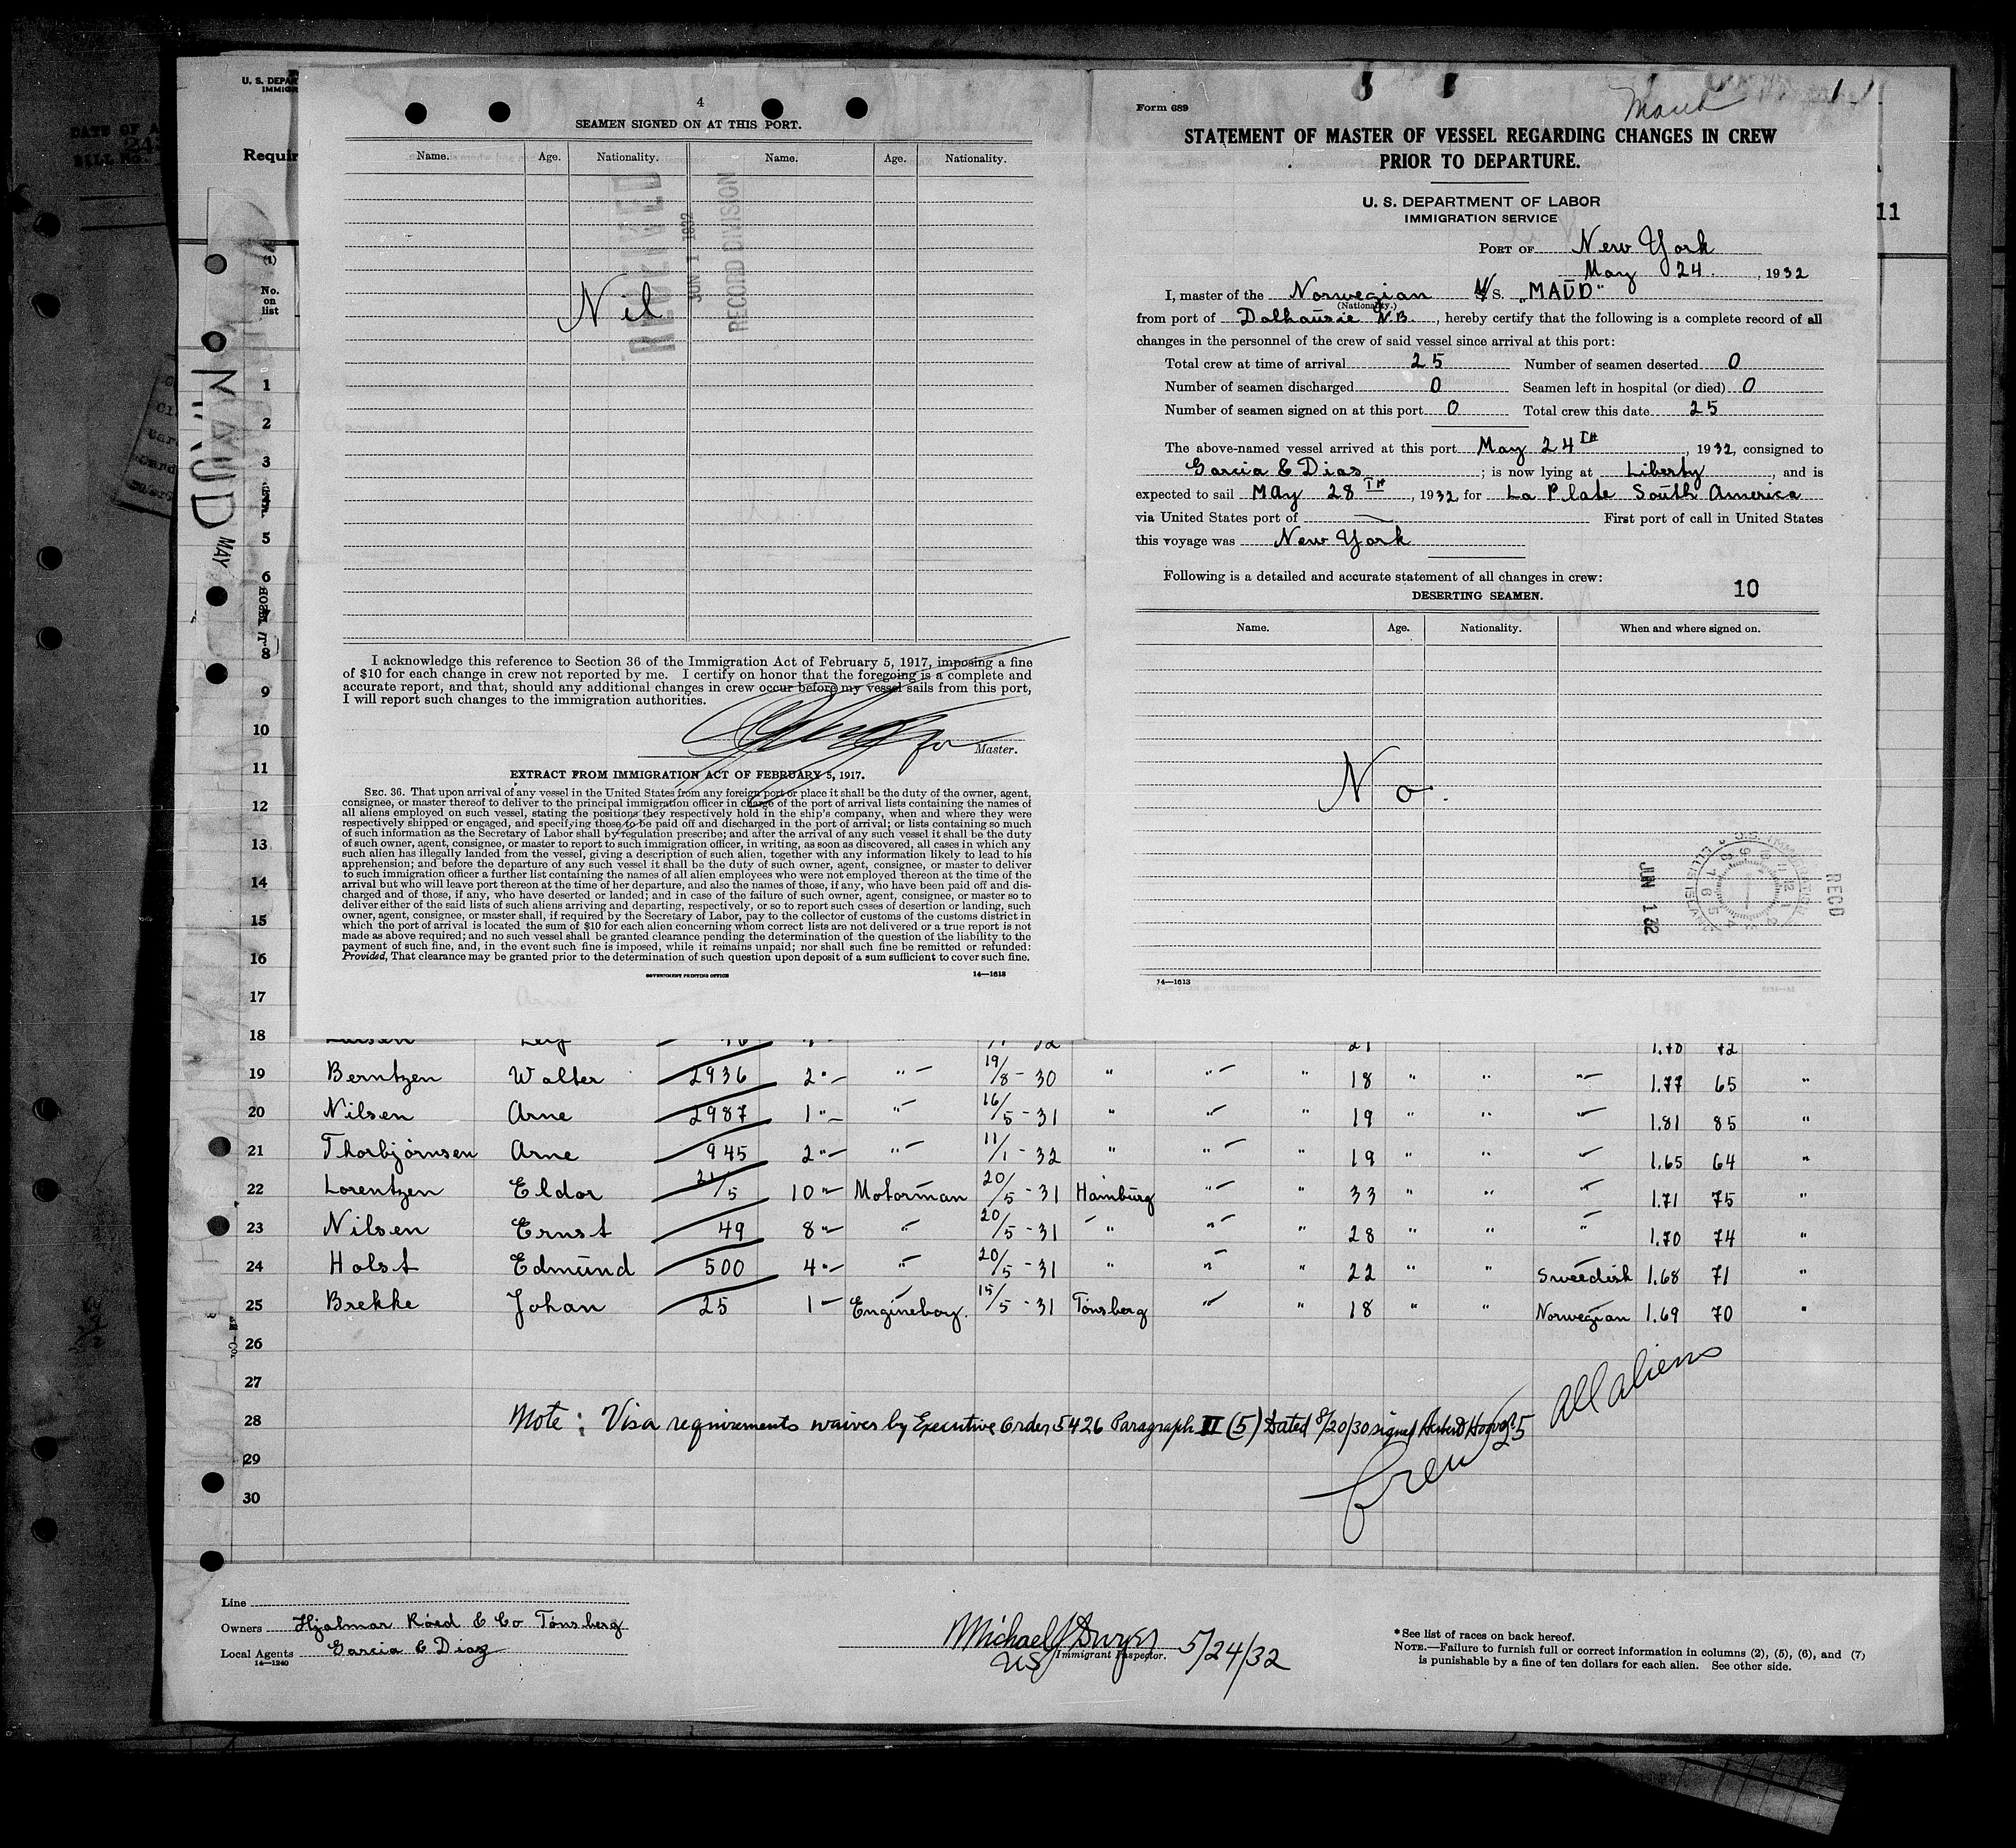 4
SEAMEN SIGNED ON AT THIS PORT.
Name. Age. Nationality. Name. Age. Nationality.
RECEIVED
JUN 1 1932
RECORD DIVISION
Nil
I acknowledge this reference to Section 36 of the Immigration Act of February 5, 1917, imposing a fine
of $10 for each change in crew not reported by me. I certify on honor that the foregoing is a complete and
accurate report, and that, should any additional changes in crew occur before my vessel sails from this port,
I will report such changes to the immigration authorities.
for Master.
EXTRACT FROM IMMIGRATION ACT OF FEBRUARY 5, 1917.
SEC. 36. That upon arrival of any vessel in the United States from any foreign port or place it shall be the duty of the owner, agent,
consignee, or master thereof to deliver to the principal immigration officer in charge of the port of arrival lists containing the names of
all aliens employed on such vessel, stating the positions they respectively hold in the ship's company, when and where they were
respectively shipped or engaged, and specifying those to be paid off and discharged in the port of arrival; or lists containing so much
of such information as the Secretary of Labor shall by regulation prescribe; and after the arrival of any such vessel it shall be the duty
of such owner, agent, consignee, or master to report to such immigration officer, in writing, as soon as discovered, all cases in which any
such alien has illegally landed from the vessel, giving a description of such alien, together with any information likely to lead to his
apprehension; and before the departure of any such vessel it shall be the duty of such owner, agent, consignee, or master to deliver
to such immigration officer a further list containing the names of all alien employees who were not employed thereon at the time of the
arrival but who will leave port thereon at the time of her departure, and also the names of those, if any, who have been paid off and dis-
charged and of those, if any, who have deserted or landed; and in case of the failure of such owner, agent, consignee, or master so to
deliver either of the said lists of such aliens arriving and departing, respectively, or so to report such cases of desertion or landing, such
owner, agent, consignee, or master shall, if required by the Secretary of Labor, pay to the collector of customs of the customs district in
which the port of arrival is located the sum of $10 for each alien concerning whom correct lists are not delivered or a true report is not
made as above required; and no such vessel shall be granted clearance pending the determination of the question of the liability to the
payment of such fine, and, in the event such fine is imposed, while it remains unpaid; nor shall such fine be remitted or refunded:
Provided, That clearance may be granted prior to the determination of such question upon deposit of a sum sufficient to cover such fine.
GOVERNMENT PRINTING OFFICE 14—1613
Form 689
Maud
STATEMENT OF MASTER OF VESSEL REGARDING CHANGES IN CREW
PRIOR TO DEPARTURE.
U. S. DEPARTMENT OF LABOR
IMMIGRATION SERVICE
PORT OF New York
May 24. , 1932
I, master of the Norwegian M/S. "MAUD"
(Nationality.)
from port of Dalhousie N.B. , hereby certify that the following is a complete record of all
changes in the personnel of the crew of said vessel since arrival at this port:
Total crew at time of arrival 25 Number of seamen deserted 0
Number of seamen discharged 0 Seamen left in hospital (or died) 0
Number of seamen signed on at this port 0 Total crew this date 25
The above-named vessel arrived at this port May 24TH , 1932, consigned to
Garcia & Dias ; is now lying at Liberty , and is
expected to sail MAy 28TH , 1932 for La Plate South America
via United States port of — First port of call in United States
this voyage was New York
Following is a detailed and accurate statement of all changes in crew:
10
DESERTING SEAMEN.
Name. Age. Nationality. When and where signed on.
No.
U.S. IMMIGRATION ELLIS ISLAND
RECD
JUN 1 32
14—1613
11
U. S. DEPAR
IMMIGR
Requir
(1)
No.
on
list
MAUD
MAY
1
2
3
4
5
6
7
8
9
10
11
12
13
14
15
16
17
18 Larsen Leif 21 1.70 72
19 Berntzen Walter 2936 2 "– "– 19/8 - 30 " "– " 18 " " "– 1.77 65 "
20 Nilsen Arne 2987 1 "– "– 16/5 - 31 " "– " 19 " " "– 1.81 85 "
21 Thorbjørnsen Arne 945 2 "– "– 11/1 - 32 " "– " 19 " " "– 1.65 64 "
22 Lorentzen Eldor 21/5 10 "– Motorman 20/5 - 31 Hamburg "– " 33 " " "– 1.71 75 "
23 Nilsen Ernst 49 8 "– "– 20/5 - 31 " "– " 28 " " "– 1.70 74 "
24 Holst Edmund 500 4 "– "– 20/5 - 31 " "– " 22 " " Sweedish 1.68 71 "
25 Brekke Johan 25 1 – Engineboy. 15/5 - 31 Tønsberg "– " 18 " " Norwegian 1.69 70 "
26
27
28 Note: Visa requirements waives by Executive Order 5426 Paragraph II (5) Dated 8/20/30 signed Herbert Hoover
29
30
Crew 25 All aliens
Line
Owners Hjalmar Røed & Co Tønsberg
Local Agents Garcia & Diaz
14—1240
Michael J Dwyer 5/24/32
US Immigrant Inspector.
*See list of races on back hereof.
NOTE.—Failure to furnish full or correct information in columns (2), (5), (6), and (7)
is punishable by a fine of ten dollars for each alien. See other side.